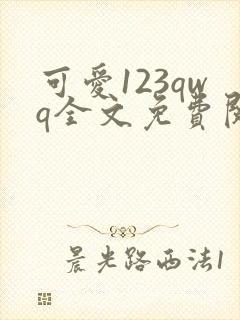 可愛123qw
q全文免費閱
晨光路西法1